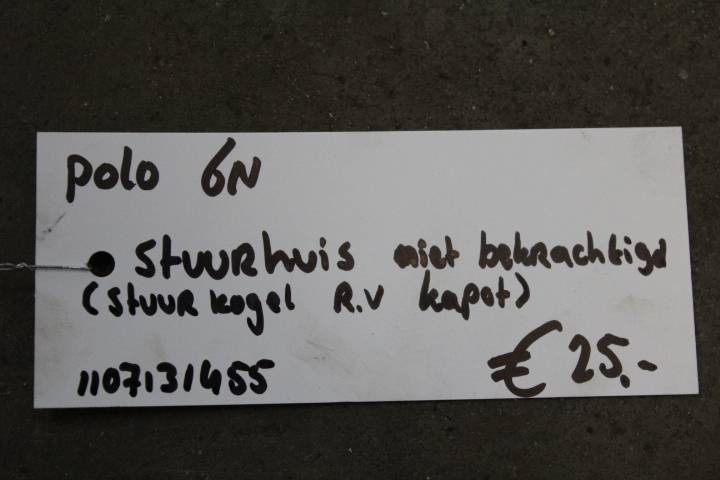 Polo 6N
stuurhuis niet bekrachtigd
(stuurkogel R.V kapot)
1107131455
€ 25,-